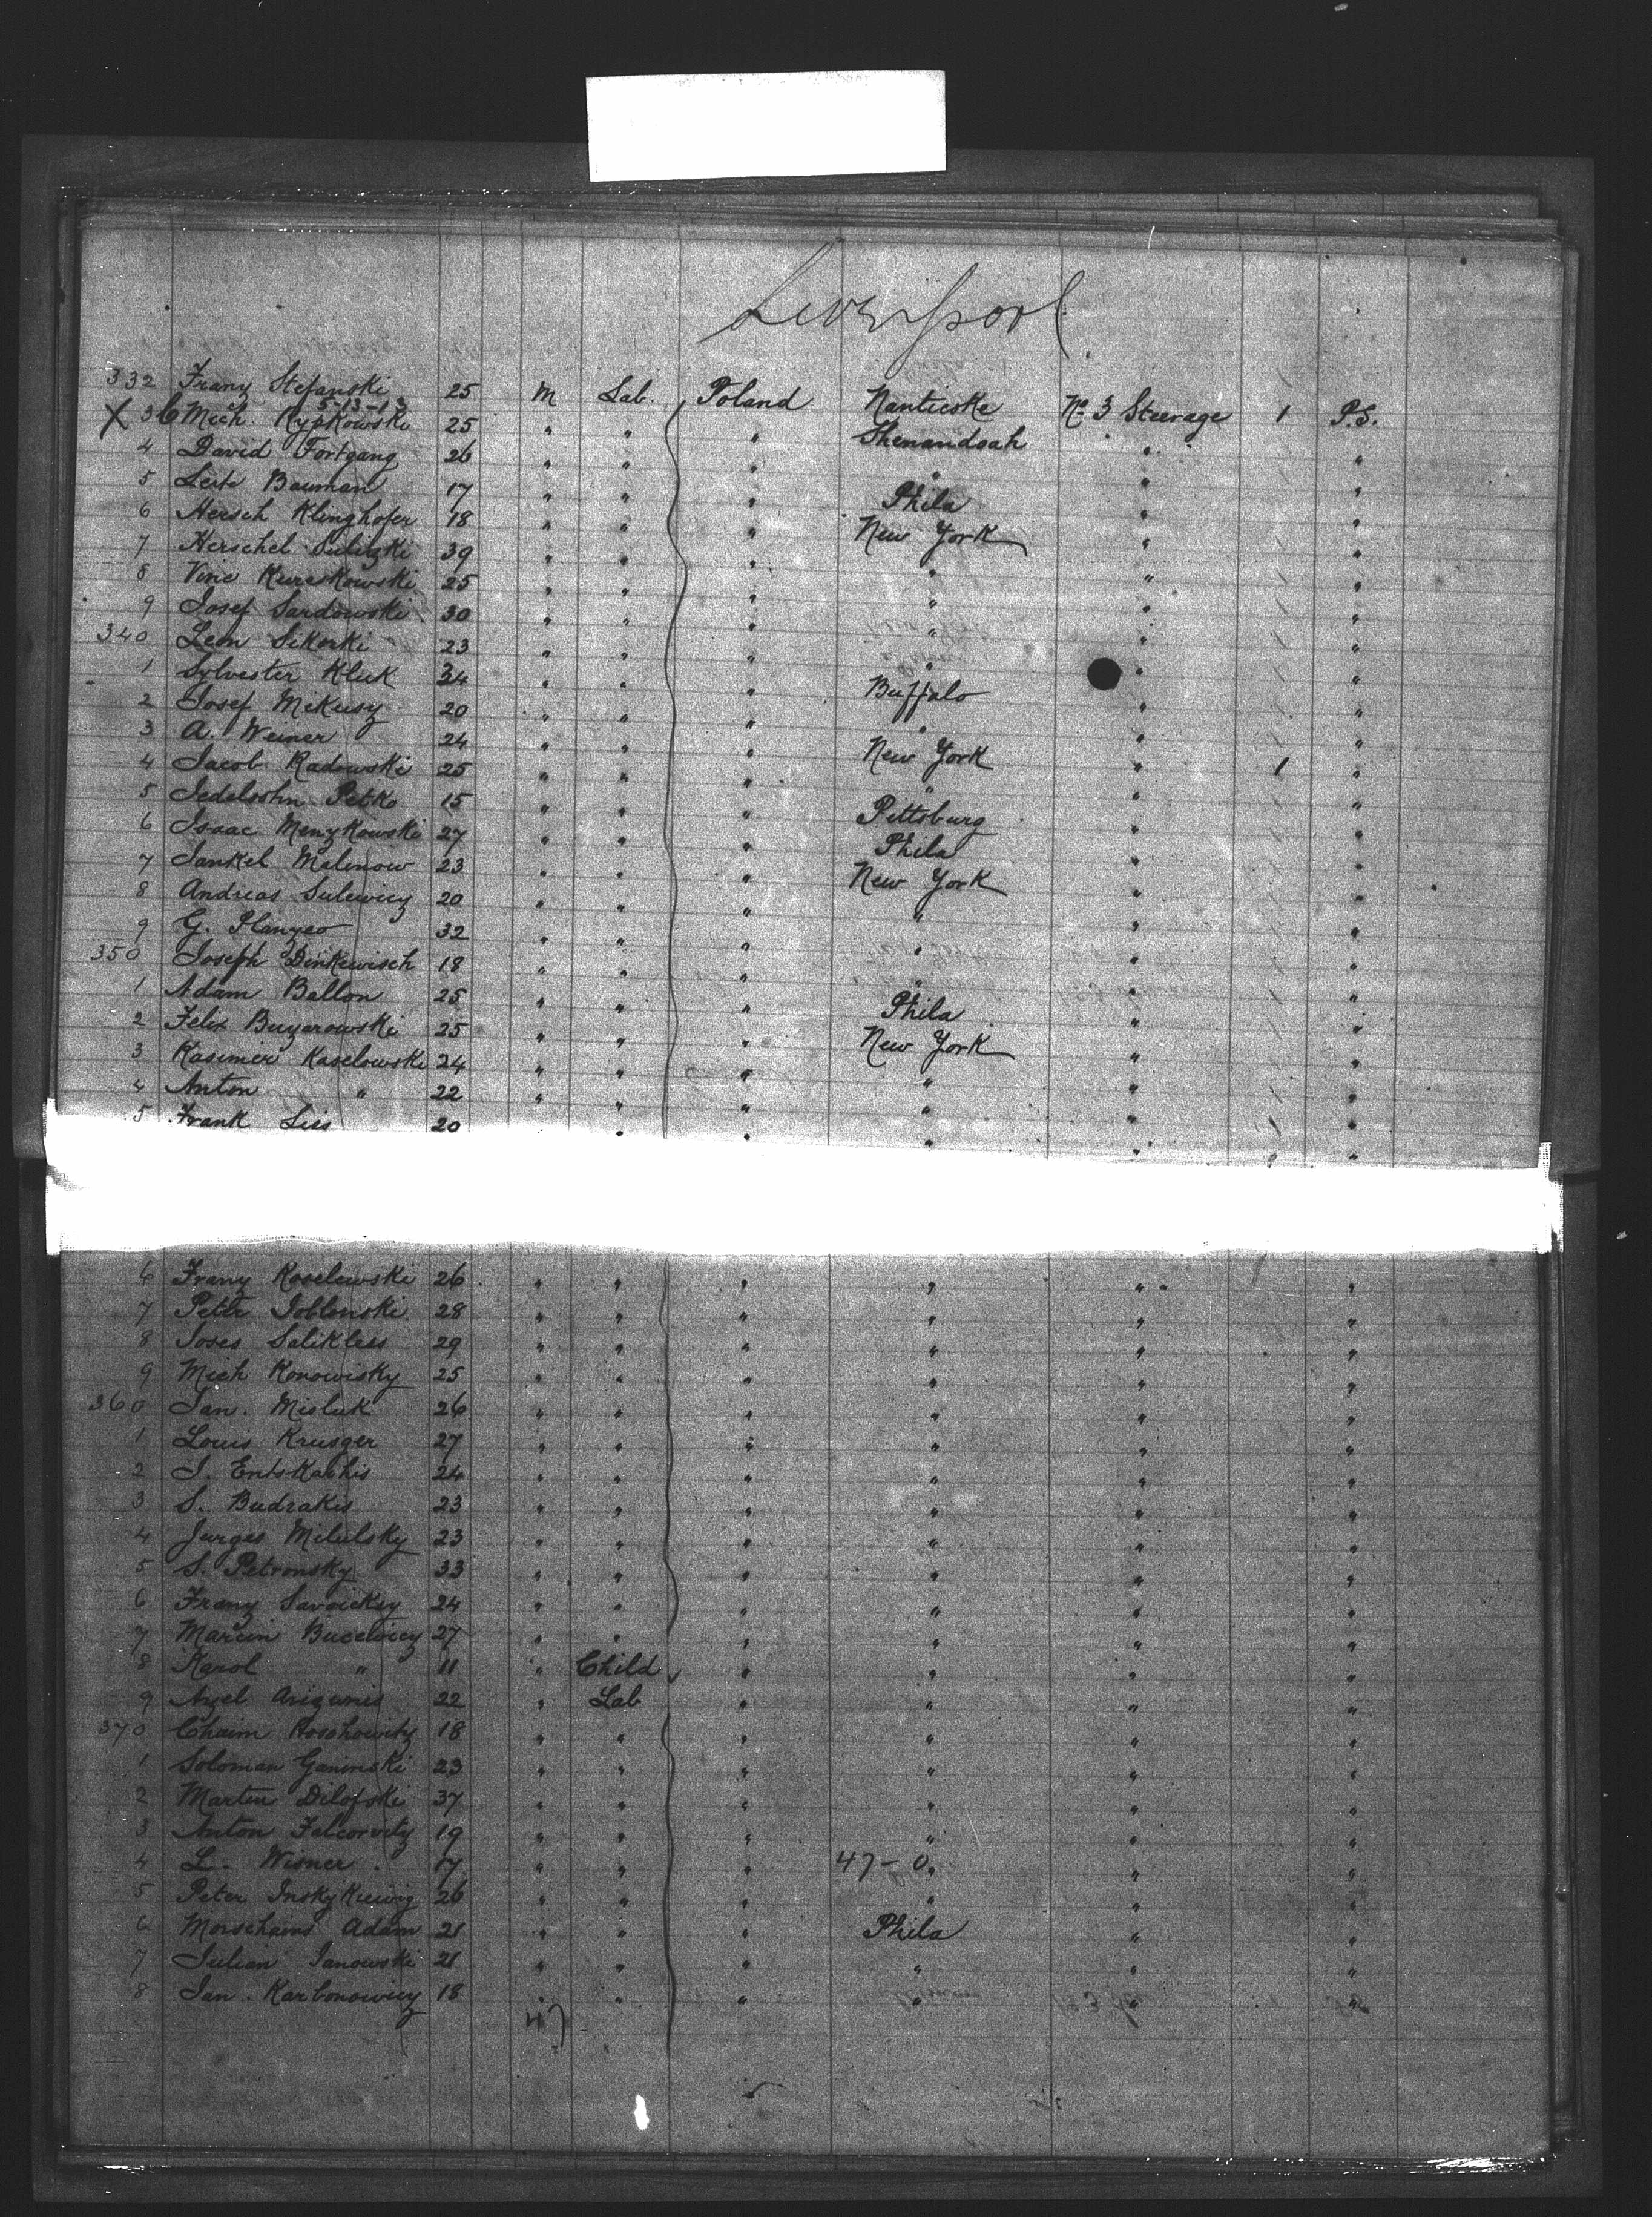 Liverpool
332 Franz Stefanski 25 M Lab. Poland Nanticoke No 3 Steerage 1 P.S.
5-13-13
X 3 6 Mich. Rypkowski 25 " " " Shenandoah " "
4 David Fortgang 26 " " " " " "
5 Bauman 17 " " " Phila " "
6 Hersch Klinghofer 18 " " " New York " "
7 Herschel Sulitzki 39 " " " " " "
8 Vinc Kureskowski 25 " " " " " "
9 Josef Sandowski 30 " " " " " "
340 Leon Sikorki 23 " " " " " "
1 Sylvester Kluk 34 " " " Buffalo " "
2 Josef Mikusz 20 " " " " " "
3 A. Weiner 24 " " " New York " 1 "
4 Jacob Radowski 25 " " " " " "
5 Sedelsohn Petko 15 " " " Pittsburg " "
6 Isaac Menzkowski 27 " " " Phila " "
7 Jankel Malinow 23 " " " New York " "
8 Andreas Sulewicz 20 " " " " " "
9 G. Planzeo 32 " " " " " "
350 Joseph Dinkewisch 18 " " " " " "
1 Adam Ballon 25 " " " Phila " "
2 Felix Buzarowski 25 " " " New York " "
3 Kasimier Kaselowski 24 " " " " " "
4 Anton " 22 " " " " " "
5 Frank Liss 20 " " " " "
6 Franz Koselewski 26 " " " " " "
7 Petr Joblonski 28 " " " " " "
8 Joses Selikless 29 " " " " " "
9 Mich Konowisky 25 " " " " " "
360 Jan. Misluk 26 " " " " " "
1 Louis Krusger 27 " " " " " "
2 J. Entskachis 24 " " " " " "
3 S. Budrakis 23 " " " " " "
4 Jurges Milulsky 23 " " " " " "
5 S. Petronsky 33 " " " " " "
6 Franz Savoickey 24 " " " " " "
7 Marcin Bucewicz 27 " " " " " "
8 Karol " 11 " Child " " " "
9 Azel Arigunis 22 " Lab " " " "
370 Chaim Roschowitz 18 " " " " " "
1 Soloman Ganinski 23 " " " " " "
2 Martin Dilofski 37 " " " " " "
3 Anton Falcorvitz 19 " " " " " "
4 L. Wisner 17 " " " 47-0 " "
5 Peter 26 " " " " " "
6 Morschains Adam 21 " " " Phila " "
7 Julian Janowski 21 " " " " " "
8 Jan. Karbonowicz 18 " " " " " "
47